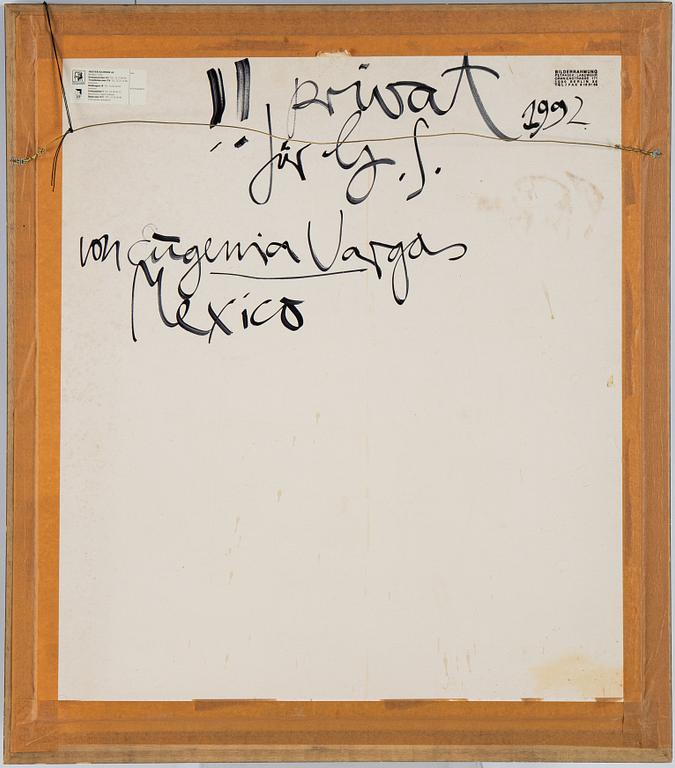 !! privat
1992
für G. S.
von Eugenia Vargas
Mexico
BILDERRAHMUNG